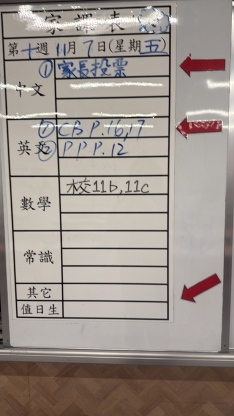 家課表
第十週 11月7日(星期五)
中文 ① 家長投票
英文 ① CB P.16,17
② PPP.12
數學 校11b,11c
常識
其它
值日生